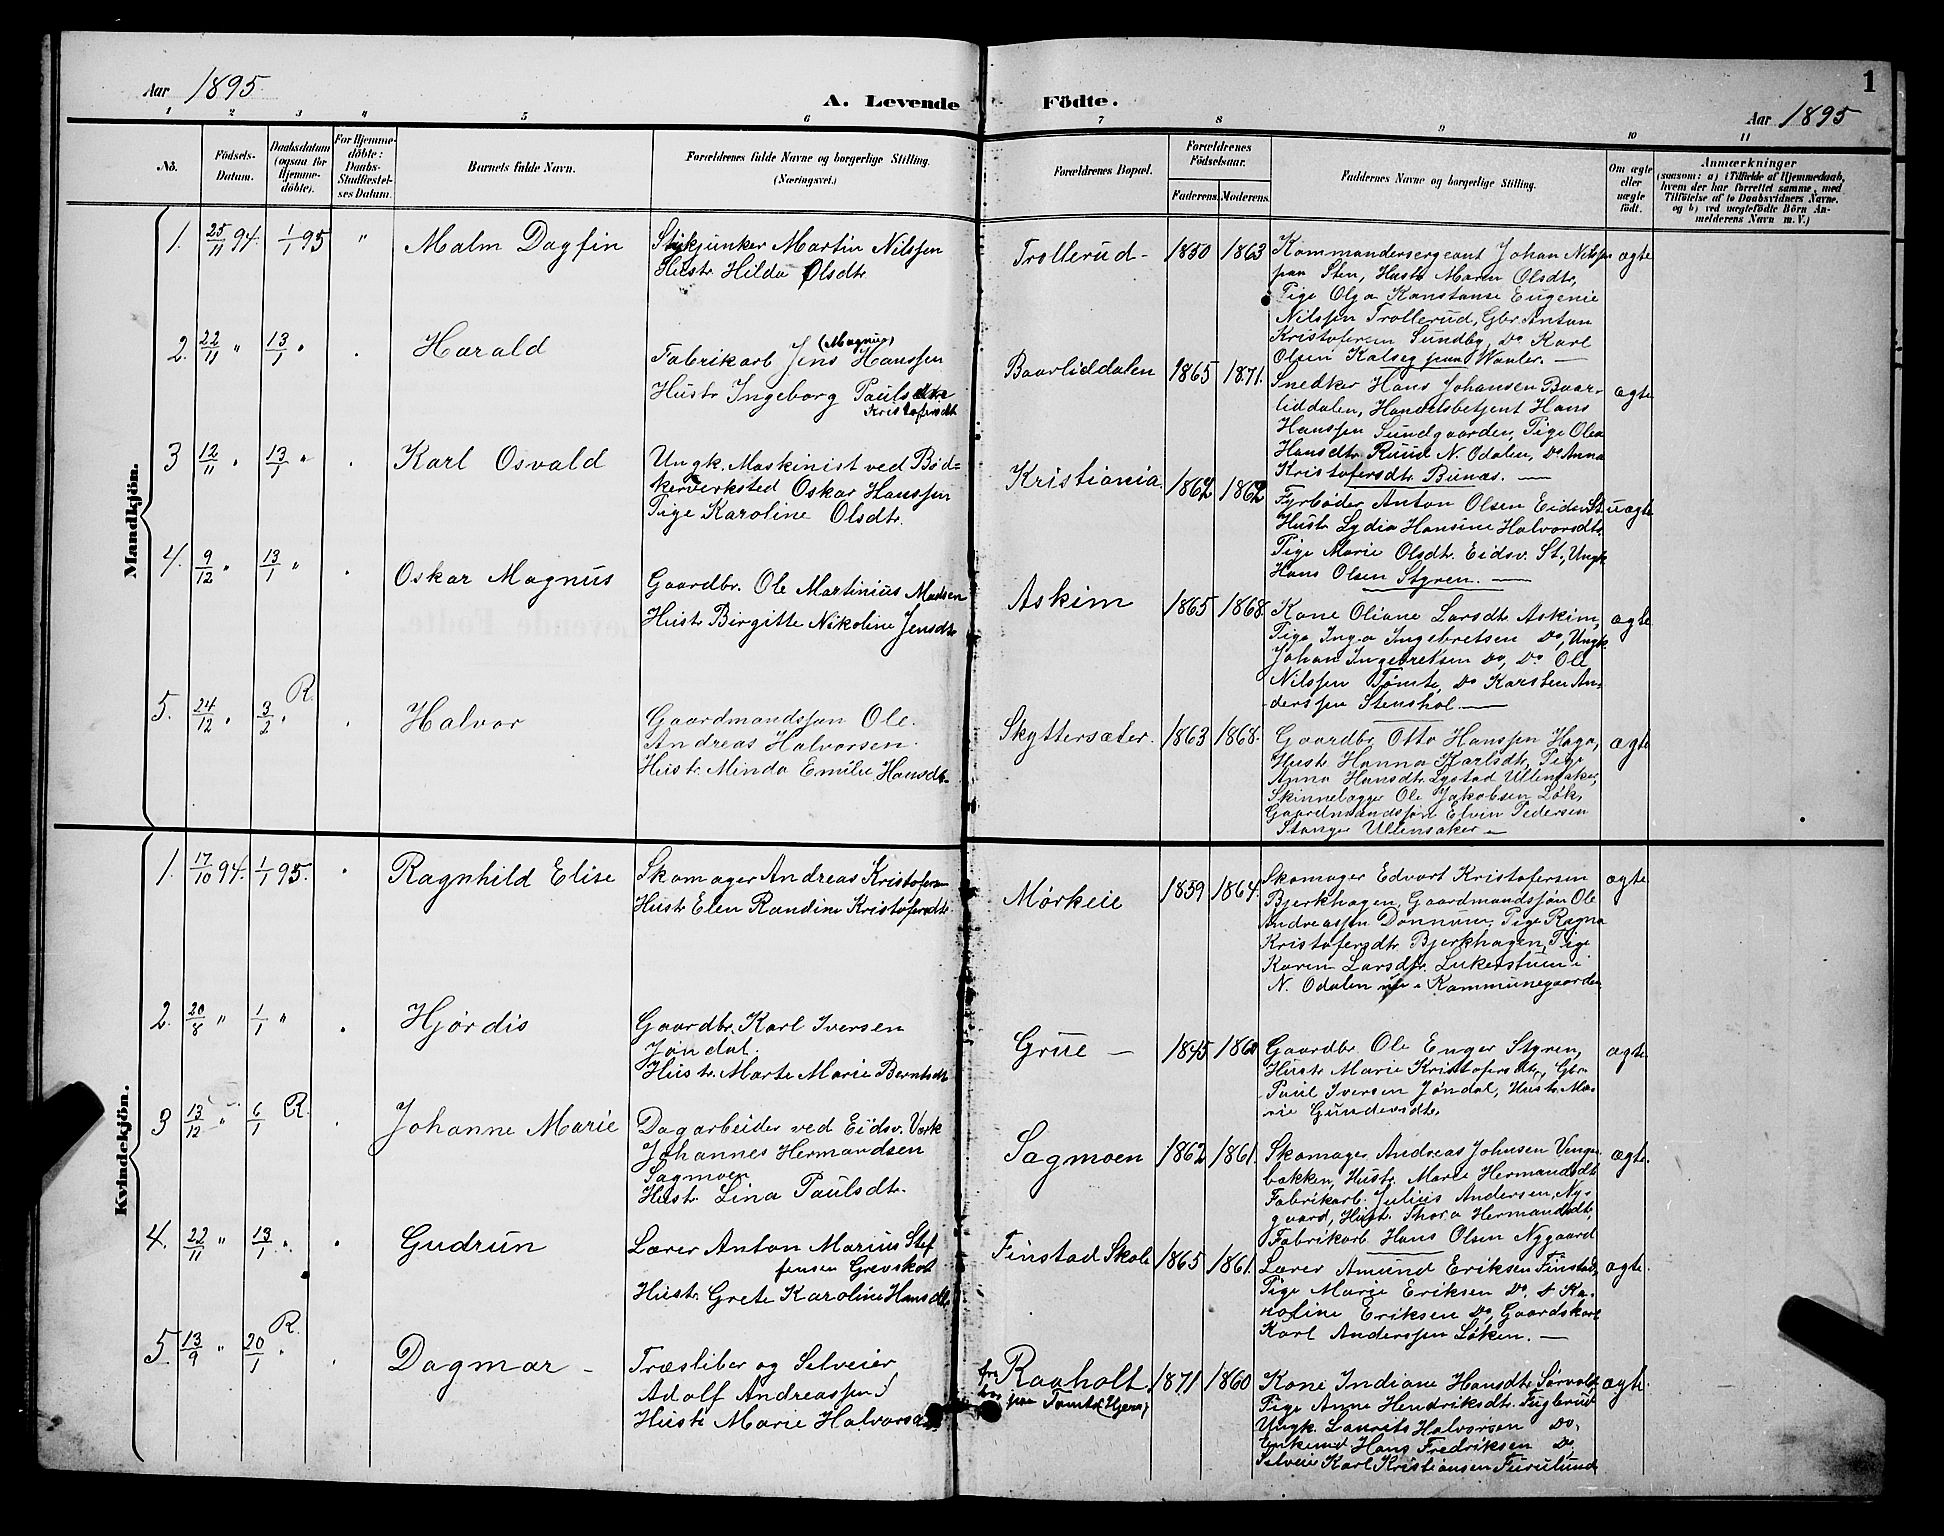 Aar 1895
A. Levende Födte.
1
Aar 1895
1 2 3 4 5 6 7 8 9 10 11
No.
Födsels-
Datum.
Daabsdatum
(ogsaa for
Hjemme-
döbte).
For Hjemme-
döbte:
Daabs-
Stadfæstel-
ses Datum.
Barnets fulde Navn.
Forældrenes fulde Navne og borgerlige Stilling.
(Næringsvei.)
Forældrenes Bopæl.
Forældrenes
Födselsaar.
Faderens. Moderens.
Faddernes Navne og borgerlige Stilling.
Om ægte
eller
uægte
födt.
Anmærkninger
(saasom: a) i Tilfælde af Hjemmedaab,
hvem der har forrettet samme, med
Tilföielse af to Daabsvidners Navne,
og b) ved uægtefödte Börn An-
melderens Navn m. V.)
Mandkjön.
1. 25/11 94. 1/1 95 " Malm Dagfin
Stykjunker Martin Nilssen
Hustr Hilda Olsdtr
Trollerud - 1850 1863
Kommandersergeant Johan Nilssen
paa Sten, Hustr Maren Olsdtr,
Pige Olga Konstanse Eugenie
Nilssen Trollerud, Gbr. Anton
Kristofersen Sundby, Do Karl
Olsen Kalseg paa Waaler. —
ægte
2. 22/11 " 13/1 " Harald
(Magnus)
Fabrikarb Jens Hanssen
Hustr Ingeborg Paulsdtr
Kristofersdt
Baarliddalen 1865 1871.
Snedker Hans Johansen Baar-
liddalen, Handelsbetjent Hans
Hanssen Sundgaarden, Pige Olea
Hansdtr Ruud N. Odalen, Do Anna
Kristofersdtr Bunæs. —
ægte
3 12/11 " 13/1 " Karl Osvald
Ungk. Maskinist ved Bød-
kerverksted Oskar Hanssen
Pige Karoline Olsdtr.
Kristiania 1862 1862
Fyrbøder Anton Olsen Eidsv. St
Hustr Lydia Hansine Halvorsdtr
Pige Marie Olsdtr. Eidsv. St, Ungk
Hans Olsen Styren. —
uægte
4. 9/12 " 13/1 " Oskar Magnus
Gaardbr. Ole Martinius Madsen
Hustr Birgitte Nikoline Jensdtr
Askim 1865 1868.
Kone Oliane Larsdtr Askim,
Pige Inga Ingebretsen Do, Ungk.
Johan Ingebretsen Do, Do Ole
Nilssen Tømte, Do Karsten An-
derssen Stenshol. —
ægte
5. 24/12 " 3/2 " R. Halvor
Gaardmandssøn Ole
Andreas Halvorsen
Hustr Minda Emilie Hansdt.
Skyttersæter. 1863 1868.
Gaardbr Otto Hanssen Haga,
Hustr Hanna Karlsdtr, Pige
Anna Hansdtr Lystad Ullensaker,
Skinnelægger Ole Jakobsen Løk,
Gaardmandssøn Elvin Pedersen
Stanger Ullensaker —
ægte
Kvindekjön.
1. 17/10 94. 1/1 95. " Ragnhild Elise
Skomager Andreas Kristofersen
Hustr Elen Randine Kristofersdtr.
Mørkeie 1859 1864.
Skomager Edvart Kristofersen
Bjerkhagen, Gaardmandssøn Ole
Andreassen Dønnum, Pige Ragna
Kristofersdtr Bjerkhagen, Pige
Karen Larsdtr. i
N. Odalen nu i Kommunegaarden
ægte
2. 20/8 " 1/1 " Hjørdis
Gaardbr. Karl Iversen
Jøndal.
Hustr. Marte Marie Berntsdt
Grue — 1845 1860
Gaardbr Ole Enger Styren,
Hustr Marie Kristofersdtr, Gbr
Paul Iversen Jøndal, Hustr Ma-
rie Gundersdtr.
ægte
3 13/12 " 6/1 R. Johanne Marie
Dagarbeider ved Eidsv. Værk
Johannes Hermandsen
Sagmoen
Hustr Lina Paulsdtr.
Sagmoen 1862 1861.
Skomager Andreas Johnsen Venge-
bakken, Hustr. Marie Hermandsdt
Fabrikarb. Julius Andersen Ny-
gaard, Hustr. Thora Hermandsdtr,
Fabrikarb Hans Olsen Nygaard
ægte.
4. 22/11 " 13/1 " Gudrun
Lærer Anton Marius Stef
fensen Grevskot
Hustr. Grete Karoline Hansdtr
Finstad Skole 1865 1861.
Lærer Amund Eriksen Finstad,
Pige Marie Eriksen Do, + Ka-
roline Eriksen Do, Gaardskarl
Karl Anderssen Løken. —
ægte.
5. 13/9 " 20/1 " R. Dagmar -
Træsliber og Selveier
Adolf Andreassen
Hustr Marie Halvorsd
Raaholt. 1871 1860
paa Tomten (Hjera)
Kone Indiane Hansdtr Sørvald,
Pige Anne Hendriksdtr. Fuglerud
Ungk. Laurits Halvorsen Do.
Enkemd Hans Fredriksen Do,
Selveier Karl Kristiansen Furulund
ægte.